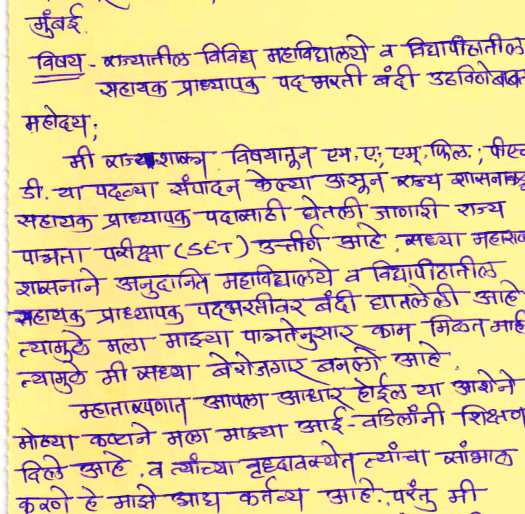 मुंबई.
विषय - राज्यातील विविध महाविद्यालये व विद्यापीठातील
सहायक प्राध्यापक पद भरती बंदी उठविणेबाबत
महोदय;
मी राज्यशास्त्र विषयातून एम. ए; एम. फिल.; पीएच
डी. या पदव्या संपादन केल्या असून राज्य शासनाकडू
सहायक प्राध्यापक पदासाठी घेतली जाणारी राज्य
पात्रता परीक्षा (SET) उत्तीर्ण आहे. सध्या महाराष्ट्र
शासनाने अनुदानित महाविद्यालये व विद्यापीठातील
सहायक प्राध्यापक पदभरतीवर बंदी घातलेली आहे
त्यामुळे मला माझ्या पात्रतेनुसार काम मिळत नाही
त्यामुळे मी सध्या बेरोजगार बनलो आहे.
म्हातारपणात आपला आधार होईल या आशेने
मोठ्या कष्टाने मला माझ्या आई-वडिलांनी शिक्षण
दिले आहे. व त्यांच्या वृध्दावस्थेत त्यांचा सांभाळ
करणे हे माझे आद्य कर्तव्य आहे. परंतु मी